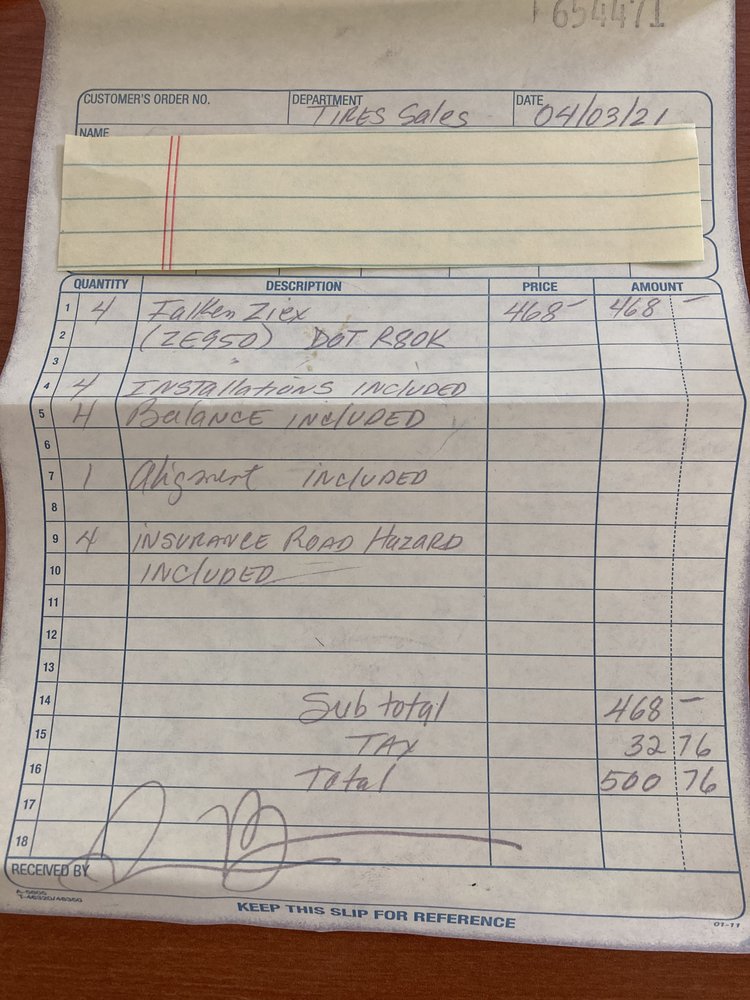 654471
CUSTOMER'S ORDER NO. DEPARTMENT DATE
TIRES Sales 04/03/21
NAME
QUANTITY DESCRIPTION PRICE AMOUNT
1 4 Falken Ziex 468- 468 -
2 (ZE950) DOT R80K
3
4 4 INSTAllATIONS INCLUDED
5 4 BALANCE INCLUDED
6
7 1 Aligment INCLUDED
8
9 4 INSURANCE ROAD HAZARD
10 INCLUDED
11
12
13
14 Sub total 468 -
15 TAX 32 76
16 Total 500 76
17
18
RECEIVED BY
A-5805
T-46320/46350
KEEP THIS SLIP FOR REFERENCE
01-11